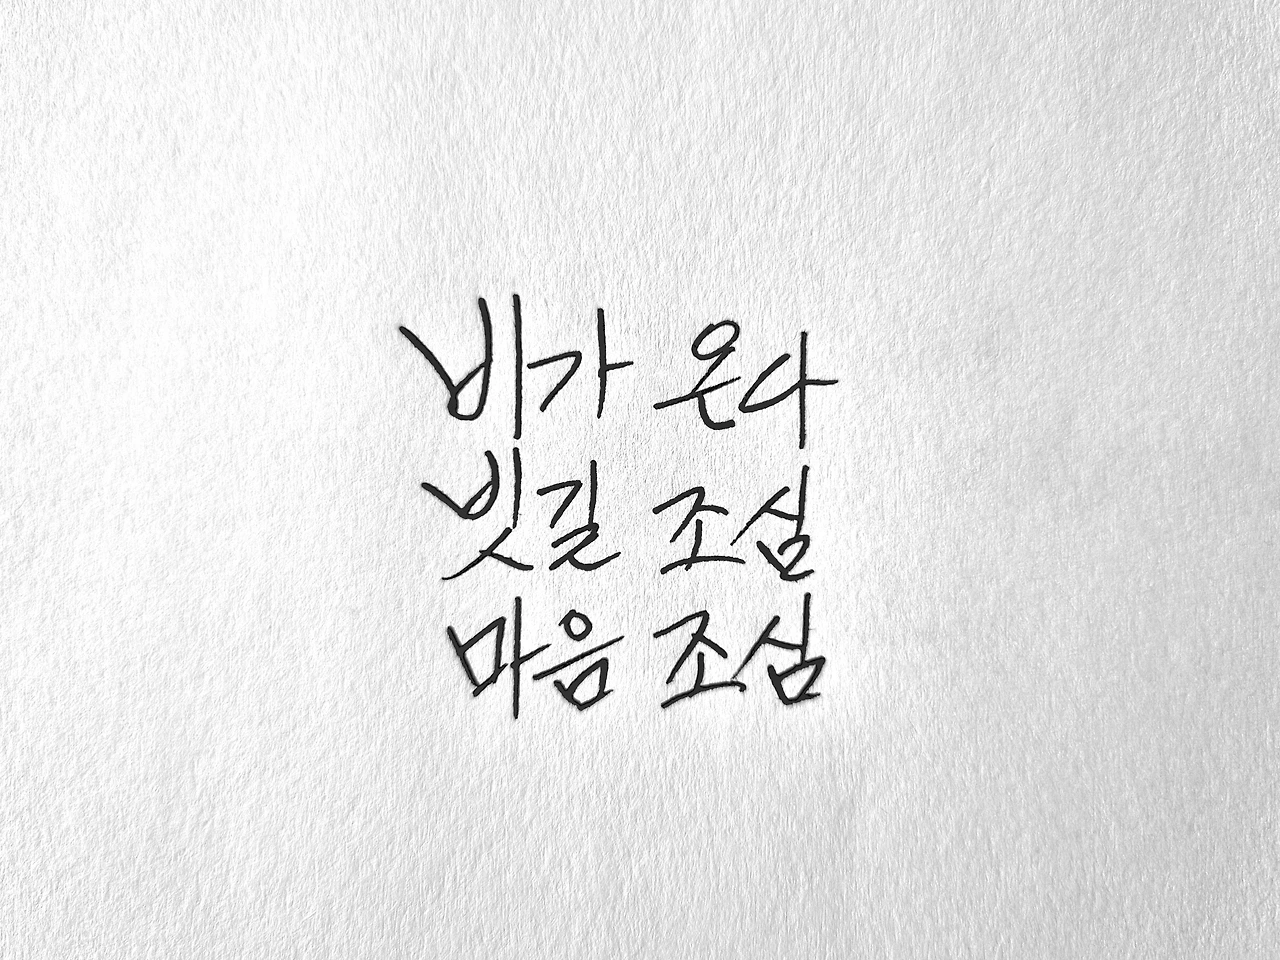 비가 온다
빗길 조심
마음 조심